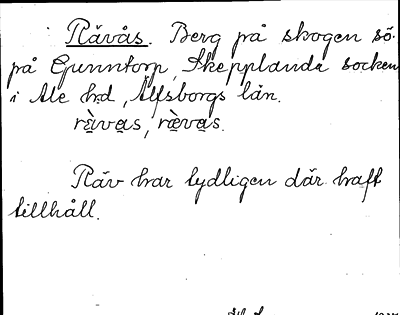 Rävås. Berg på skogen sö.
på Gunntorp, Skepplanda socken
i Ale hd, Älfsborgs län.
rä̀vas, rævas.
Räv har tydligen där haft
tillhåll.